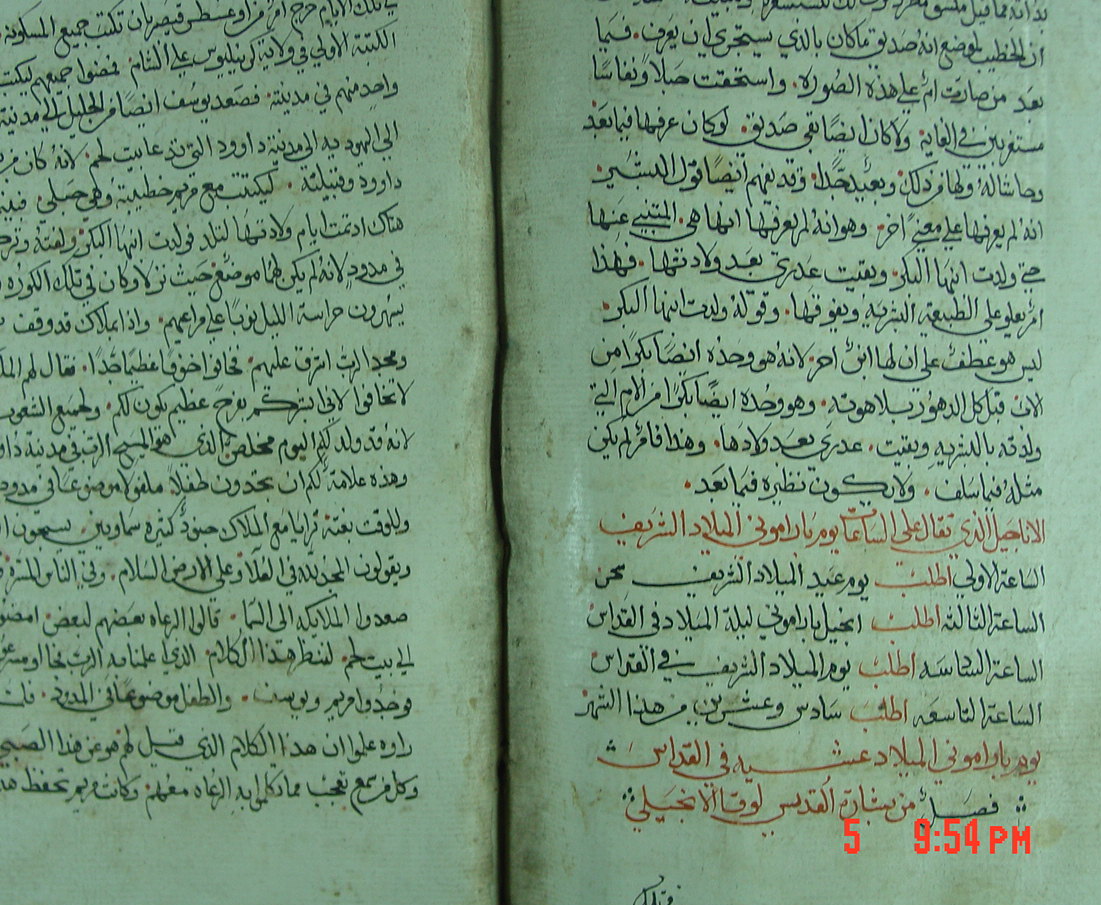 ان الخطيب لموضع انه صديق ماكان بالذي سيتحري ان يعرف. فيما
بعد من صارت ام على هذه الصوره. واستحقت حبلا ونفاسا
مستغربين في الغايه ولا كان ايضا بقي صديق. لوكان عرفها فيما بعد
وحاشا له ولها من ذلك وبعيد جدا. وقد يفهم ايضا قول البشير
انه لم يعرفها على معني اخر. وهو انه لم يعرفها انها هي المتنبي عنها
حتي ولدت ابنها البكر. وبقيت عدري بعد ولادتها. فهذا
امر يعلو على الطبيعه البشريه ويفوقها. وقوله ولدت ابنها البكر.
ليس هو عطف على ان لها ابن اخر. لانه هو وحده ايضا بكرا من
الاب قبل كل الدهور بلاهوته. وهو وحده ايضا بكرا من الام التي
ولدته بالبشريه وبقيت. عدري بعد ولادها. وهذا فامر لم يكن
مثله فيما سلف. ولا يكون نظيره فيما بعد.
الاناجيل الذي تقال على الساعات يوم باراموني الميلاد الشريف
الساعة الاولي اطلب يوم عيد الميلاد الشريف سحر
الساعة الثالثه اطلب انجيل باراموني ليلة الميلاد في القداس
الساعة السادسه اطلب يوم الميلاد الشريف في القداس
الساعة التاسعه اطلب سادس وعشرين من هذا الشهر
يوم باراموني الميلاد عشيه في القداس
فصل من بشارة القديس لوقا الانجيلي
في تلك الايام خرج امر من اوغسطس قيصر بان تكتب جميع المسكونه.
الكتبة الاولي في ولاية كيرينليوس على الشام. فمضوا جميعهم ليكتب
واحد منهم في مدينته. فصعد يوسف ايضا من الجليل الى مدينة
الى اليهوديه الى مدينة داوود التي تدعا بيت لحم. لانه كان من
داوود وقبيلته. ليكتتب مع مريم خطيبته وهي حبلى.
هناك اذ تمت ايام ولادتها لتلد فولدت ابنها البكر. ولفته
في مدود. لانه لم يكن لهما موضع حيث نزلا وكان في تلك الكوره
يسهرون حراسة الليل نوبا على مراعيهم. واذا بملاك قد وقف
ومجد الرب اشرق عليهم. فخافوا خوفا عظيما جدا. فقال لهم
لا تخافوا لاني ابشركم بفرح عظيم يكون لكم. ولجميع الشعوب
لانه قد ولد لكم اليوم مخلص الذي هو المسيح الرب في مدينة
وهذه علامة لكم ان تجدون طفلا ملفوفا موضوعا في مدود
وللوقت بغتة ترايا مع الملاك جنود كثيره سماويين. يسبحون
ويقولون المجد لله في العلا وعلى الارض السلام. وفي الناس المسره
صعدوا الملايكه الى السما. قالوا الرعاه بعضهم لبعض امضوا
الى بيت لحم. لننظر هذا الكلام الذي اعلمنا به الرب
فوجدوا مريم ويوسف. والطفل موضوعا في المدود.
راوه علموا ان هذا الكلام الذي قيل لهم هو عن هذا الصبي
وكل من سمع تعجب مما تكلم به الرعاه معهم. وكانت مريم تحفظ
5 9:54 PM